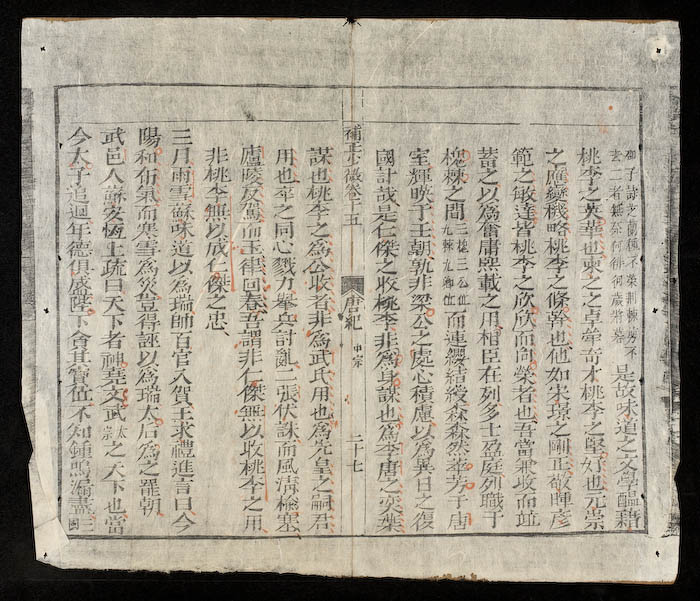 御子詩芝蘭種不榮荊棘剪不
去二者無奈何徘徊歲將暮 是故味道之文學醞藉
桃李之英華也柬之之卓犖奇才桃李之堅好也元崇
之應變機略桃李之條幹也他如宋璟之剛正敬暉彥
範之敏達皆桃李之欣欣而向榮者也吾當兼收而竝
蓄之以為奮庸熙載之用相臣在列多士盈庭列職于
槐棘之間三槐三公位九棘九卿位而連纓結綬森森然萃芳于唐
室輝映于王朝孰非梁公之處心積慮以為異日之復
國計哉是仁傑之收桃李非為身謀也為李唐之奕葉
謀也桃李之為公收者非為武氏用也為先皇之嗣君
用也卒之同心戮力舉兵討亂二張伏誅而風淸檢塞
廬陵反駕而玉律回春吾謂非仁傑無以收桃李之用
非桃李無以成仁傑之忠
補正少微卷十五 唐紀 中宗 二十七
三月雨雪蘇味道以為瑞帥百官入賀王求禮進言曰今
陽和布氣而寒雪為災豈得誣以為瑞太后為之罷朝
武邑人蘇安恆上疏曰天下者神堯文武之天下也當
今太子追迴年德俱盛陛下貪其寶位不知鐘鳴漏盡